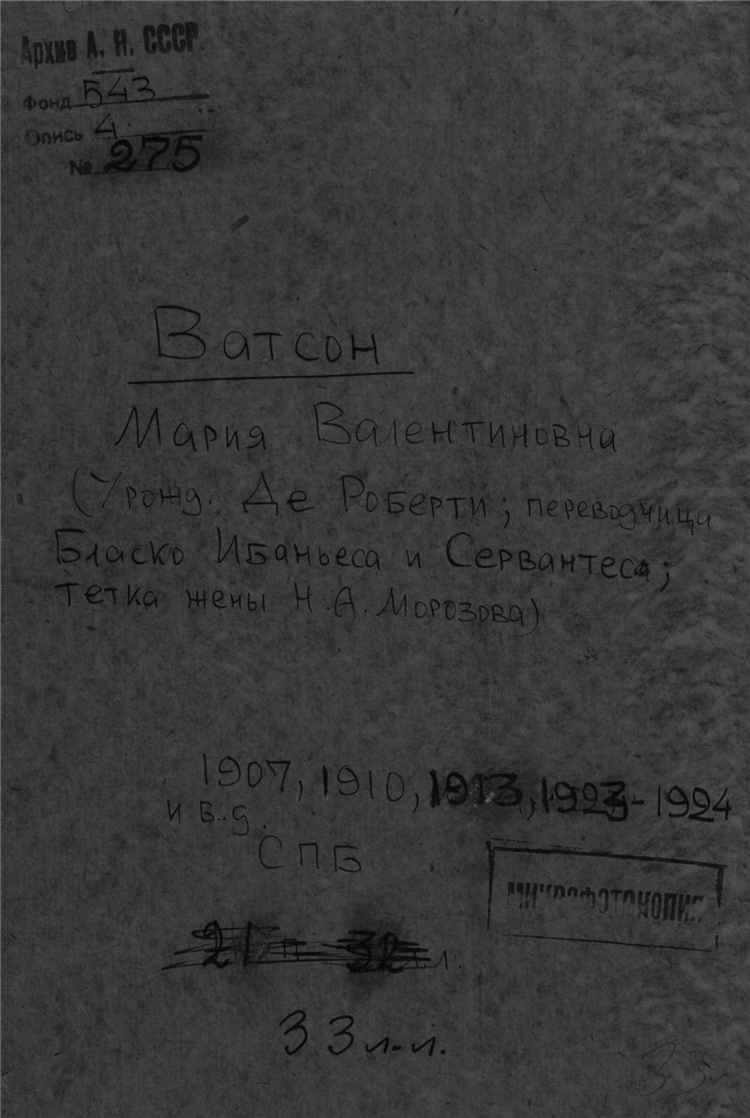 Архив А. Н. СССР.
Фонд 543
Опись 4.
№ 275
Ватсон
Мария Валентиновна
(Урожд. Де Роберти; переводчица
Бласко Ибаньеса и Сервантеса;
тетка жены Н.А. Морозова)
1907, 1910, 1913, 1923-1924
и б.д.
СПБ
МИКРОФОТОКОПИЯ
21 п 32 л.л.
33 л.-л.